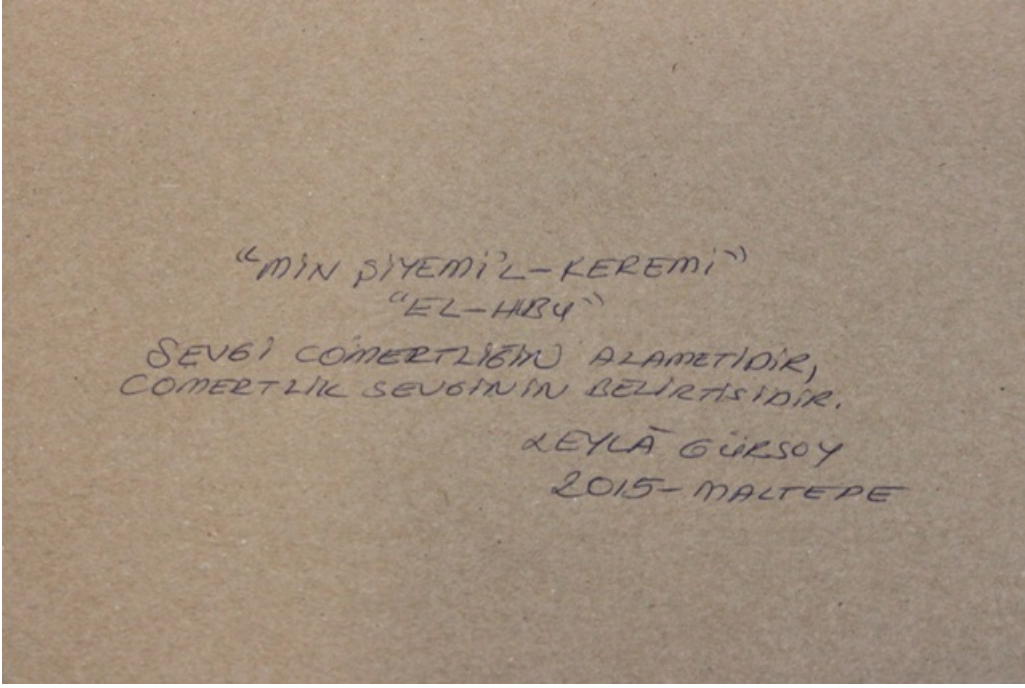 "MİN ŞİYEMİ'L-KEREMİ"
"EL-HUBU"
SEVGİ CÖMERTLİĞİN ALAMETİDİR,
COMERTLİK SEVGİNİN BELİRTİSİDİR.
LEYLÂ GÜRSOY
2015-MALTEPE